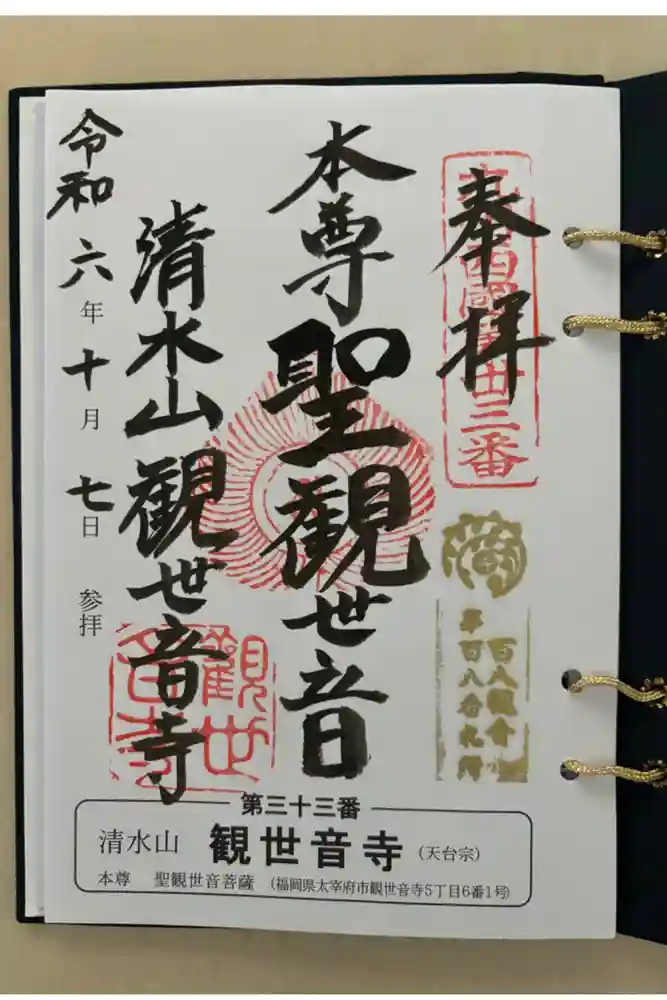 奉拝
九州西國第卅三番
満
百八観音
第百八番札所
本尊聖観世音
清水山観世音寺
観世音寺
令和六年十月七日 参拝
第三十三番
清水山 観世音寺 (天台宗)
本尊 聖観世音菩薩 (福岡県太宰府市観世音寺5丁目6番1号)